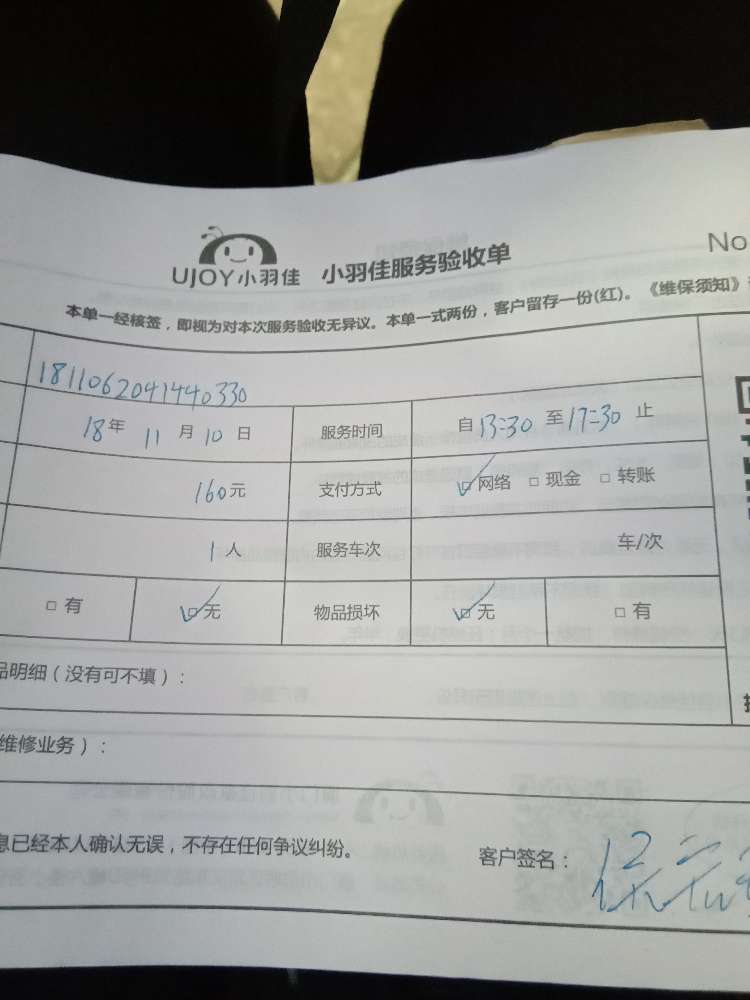 UJOY小羽佳 小羽佳服务验收单 No
本单一经核签，即视为对本次服务验收无异议。本单一式两份，客户留存一份(红)。《维保须知》
1811062041440330
18年 11月 10日 服务时间 自13:30 至17:30 止
160元 支付方式 ☑网络 □ 现金 □ 转账
1人 服务车次 车/次
□ 有 ☑无 物品损坏 ☑无 □ 有
品明细（没有可不填）：
维修业务）：
息已经本人确认无误，不存在任何争议纠纷。 客户签名：